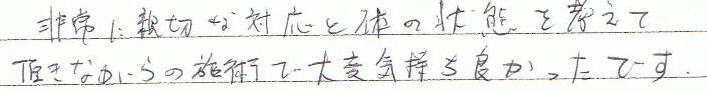 非常に親切な対応と体の状態を考えて
頂きながらの施術で大変気持ち良かったです.